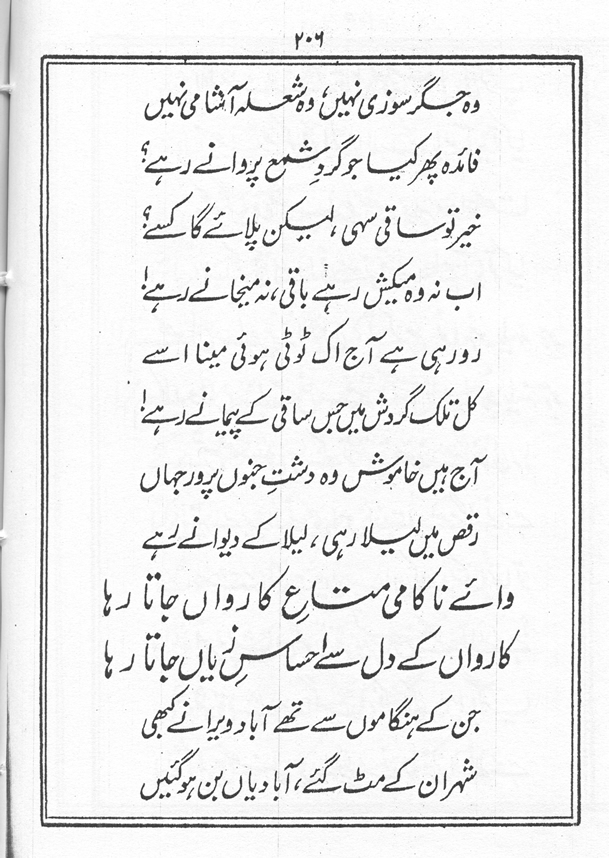 ۲۰۶
وہ جگر سوزی نہیں، وہ شعلہ آشامی نہیں
فائدہ پھر کیا جو گردِ شمع پروانے رہے؟
خیر تو ساقی سہی، لیکن پلائے گا کسے؟
اب نہ وہ میکش رہے باقی، نہ میخانے رہے!
رو رہی ہے آج اک ٹوٹی ہوئی مینا اسے
کل تلک گردش میں جس ساقی کے پیمانے رہے!
آج ہیں خاموش وہ دشتِ جنوں پرور جہاں
رقص میں لیلا رہی، لیلا کے دیوانے رہے
وائے ناکامی متاعِ کارواں جاتا رہا
کارواں کے دل سے احساسِ زیاں جاتا رہا
جن کے ہنگاموں سے تھے آباد ویرانے کبھی
شہر ان کے مٹ گئے، آبادیاں بن ہو گئیں